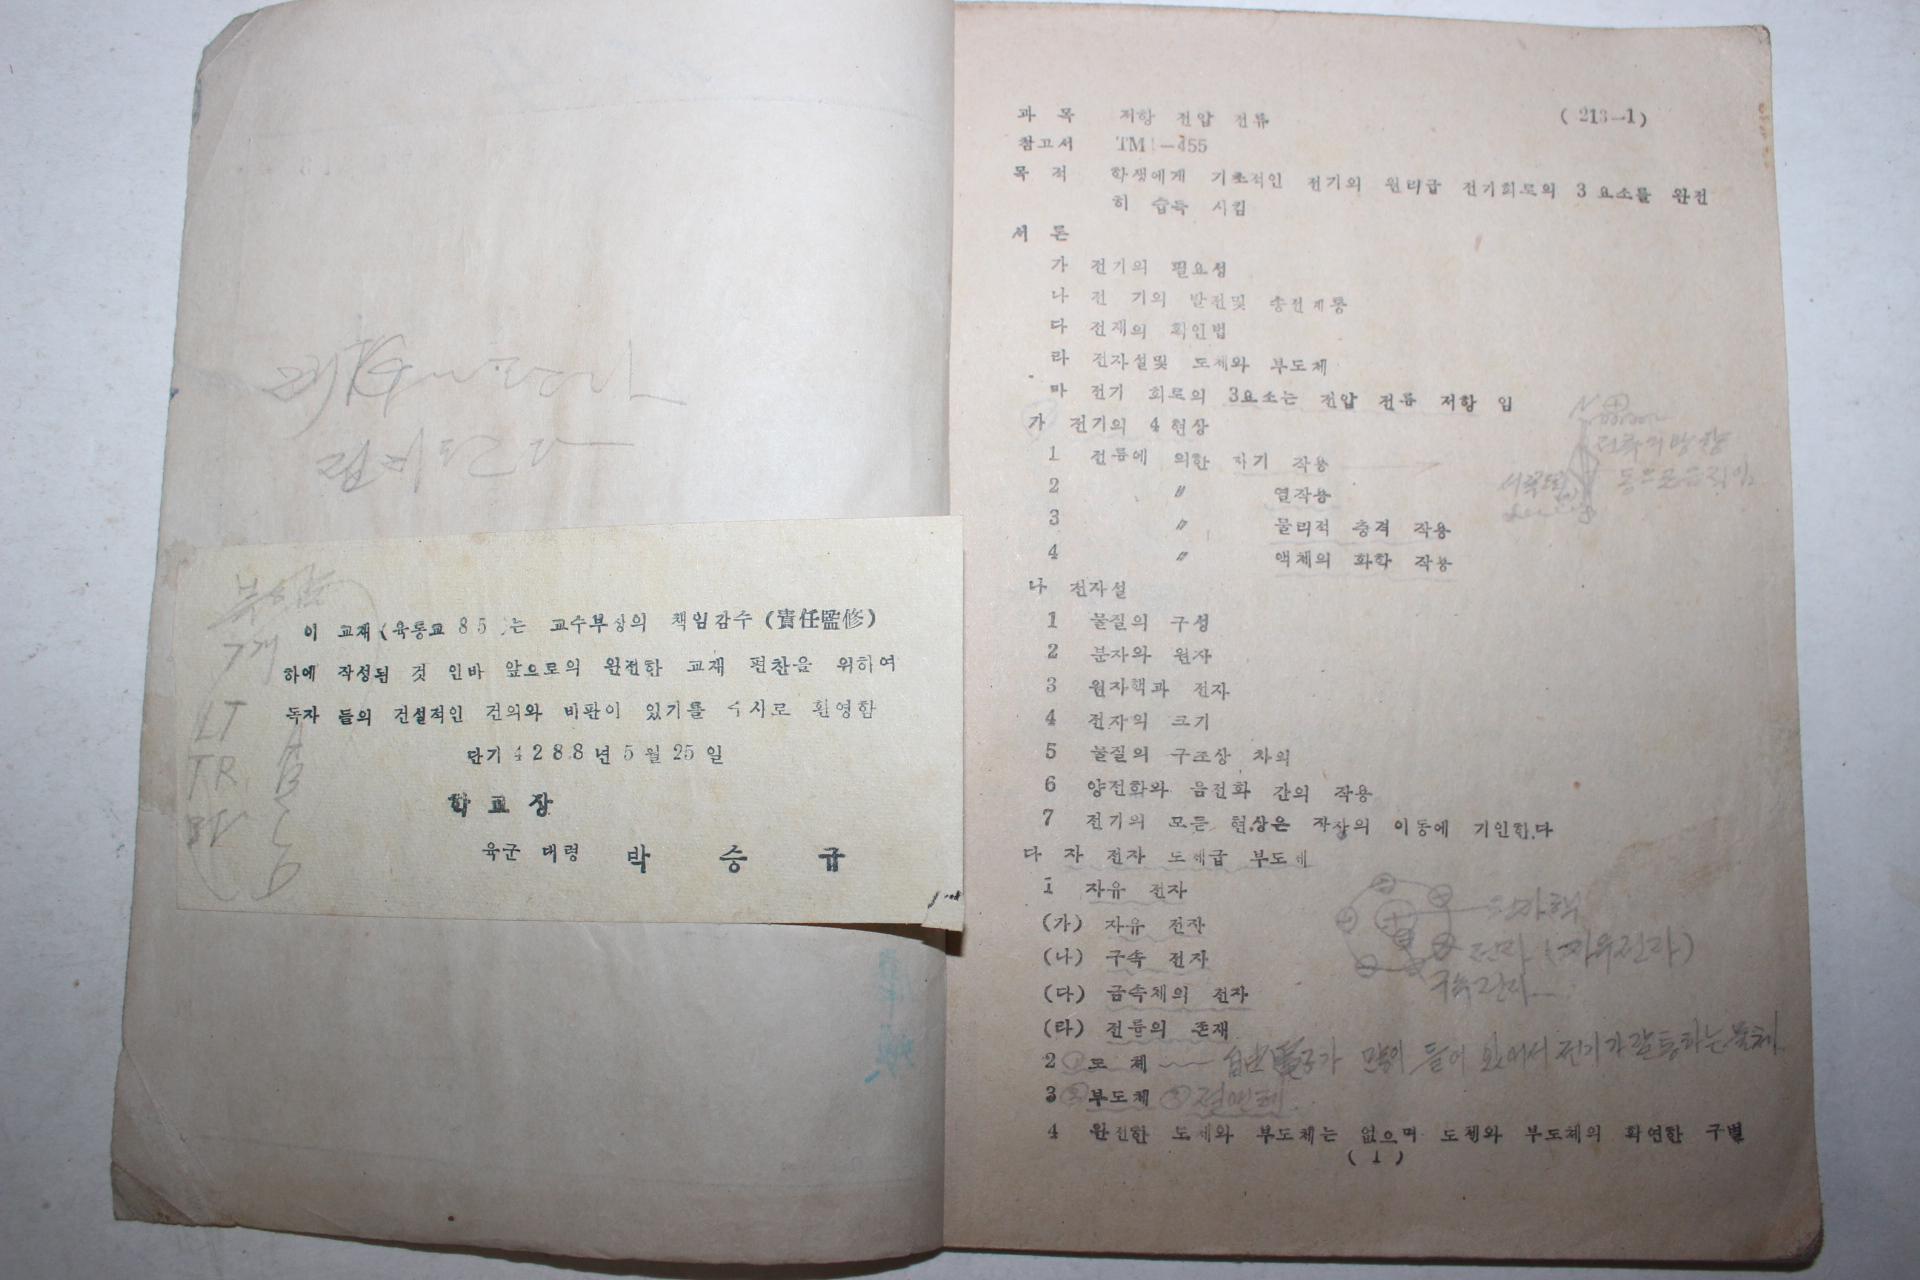 이 교재 (육통교 85)는 교수부장의 책임감수 (責任監修)
하에 작성된 것 인바 앞으로의 완전한 교재 편찬을 위하여
독자 들의 건설적인 건의와 비판이 있기를 수시로 환영함
단기 4288년 5월 25일
학교장
육군 대령 박 승 규
부속품
7개
LT
TR
A
B
C
D
과 목 저항 전압 전류 (213-1)
참고서 TM1-455
목 적 학생에게 기초적인 전기의 원리급 전기회로의 3요소를 완전
히 습득 시킴
서 론
가 전기의 필요성
나 전 기의 발전및 송전계통
다 전재의 확인법
라 전자설및 도체와 부도체
마 전기 회로의 3요소는 전압 전류 저항 임
가 전기의 4현상
1 전류에 의한 자기 작용
2 〃 열작용
3 〃 물리적 충격 작용
4 〃 액체의 화학 작용
전류의 방향
나 전자설
1 물질의 구성
2 분자와 원자
3 원자핵과 전자
4 전자의 크기
5 물질의 구조상 차의
6 양전화와 음전화 간의 작용
7 전기의 모든 현상은 작장의 이동에 기인한다
다 자 전자 도체급 부도체
1 자유 전자
(가) 자유 전자
(나) 구속 전자
(다) 금속체의 전자
(라) 전류의 존재
원자핵
전자 (자유전자)
구속전자
2 ① 도 체 自由電子가 많이 들어 있어서 전기가 잘 통하는 물체
3 ② 부도체 ③ 절연체
4 완전한 도체와 부도체는 없으며 도체와 부도체의 확연한 구별
(1)